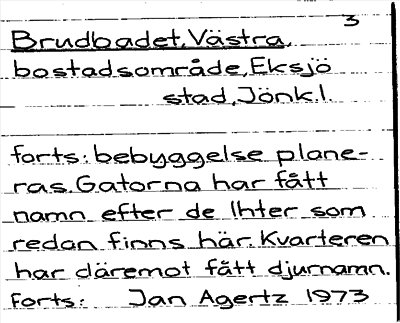 3
Brudbadet, Västra,
bostadsområde, Eksjö
stad, Jönk.l.
forts: bebyggelse plane-
ras. Gatorna har fått
namn efter de Ihter som
redan finns här. Kvarteren
har däremot fått djurnamn.
Forts: Jan Agertz 1973